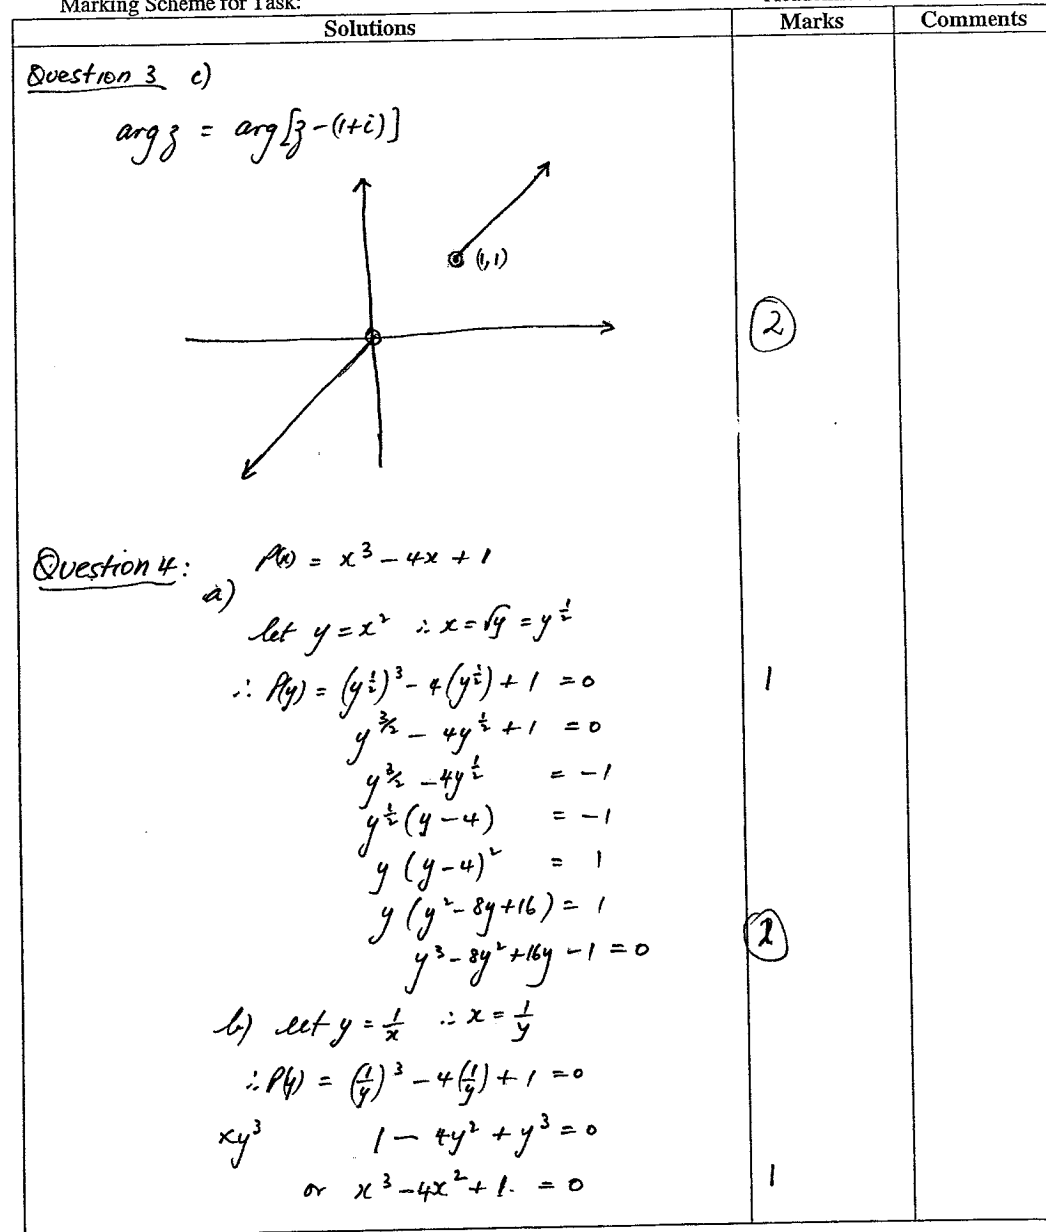 Marking Scheme for Task:
Solutions Marks Comments
Question 3 c)
arg z = arg[z-(1+i)]
(1,1)
2
Question 4: P(x) = x³ - 4x + 1
a)
let y = x² ∴ x = √y = y^½
∴ P(y) = (y^½)³ - 4(y^½) + 1 = 0 1
y^3/2 - 4y^½ + 1 = 0
y^3/2 - 4y^½ = -1
y^½(y-4) = -1
y(y-4)² = 1
y(y²-8y+16) = 1
2
y³-8y²+16y-1 = 0
b) let y = 1/x ∴ x = 1/y
∴ P(y) = (1/y)³ - 4(1/y) + 1 = 0
×y³ 1 - 4y² + y³ = 0
or x³-4x²+1. = 0 1